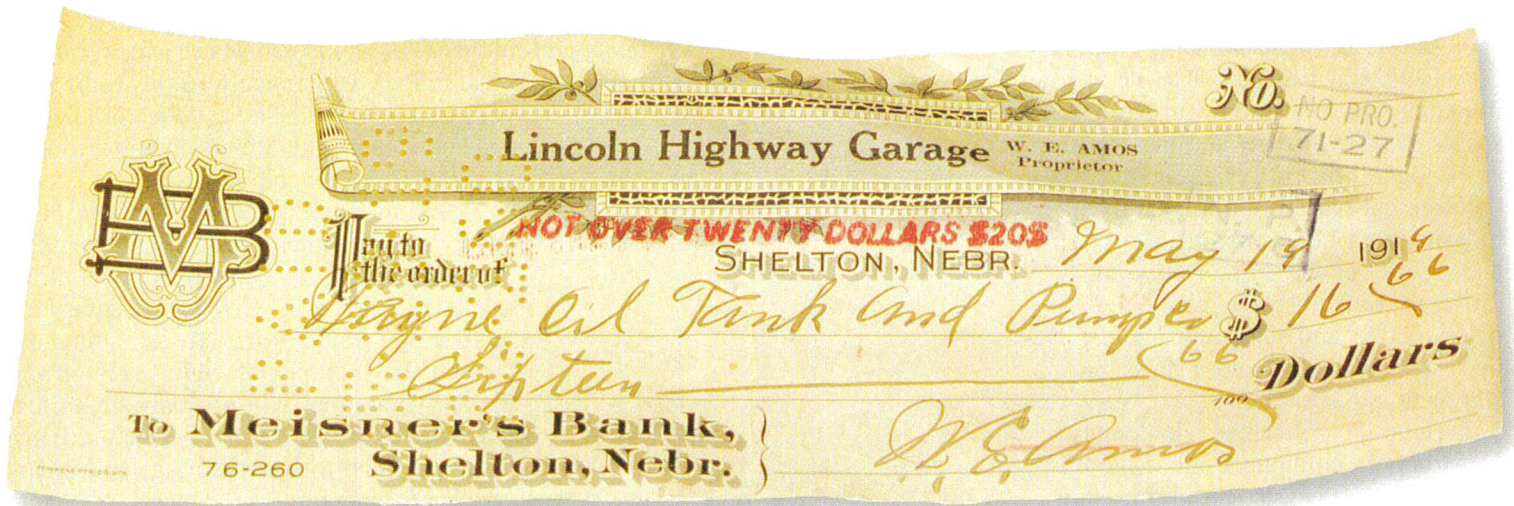 No.
NO PRO.
71-27
Lincoln Highway Garage W. E. AMOS
Proprietor
NOT OVER TWENTY DOLLARS $20$
SHELTON, NEBR. May 19 1919
Pay to
the order of
Wayne Oil Tank and Pump Co $ 16 66
Sixteen 66/100 Dollars
To Meisner's Bank,
76-260 Shelton, Nebr.
W. E. Amos